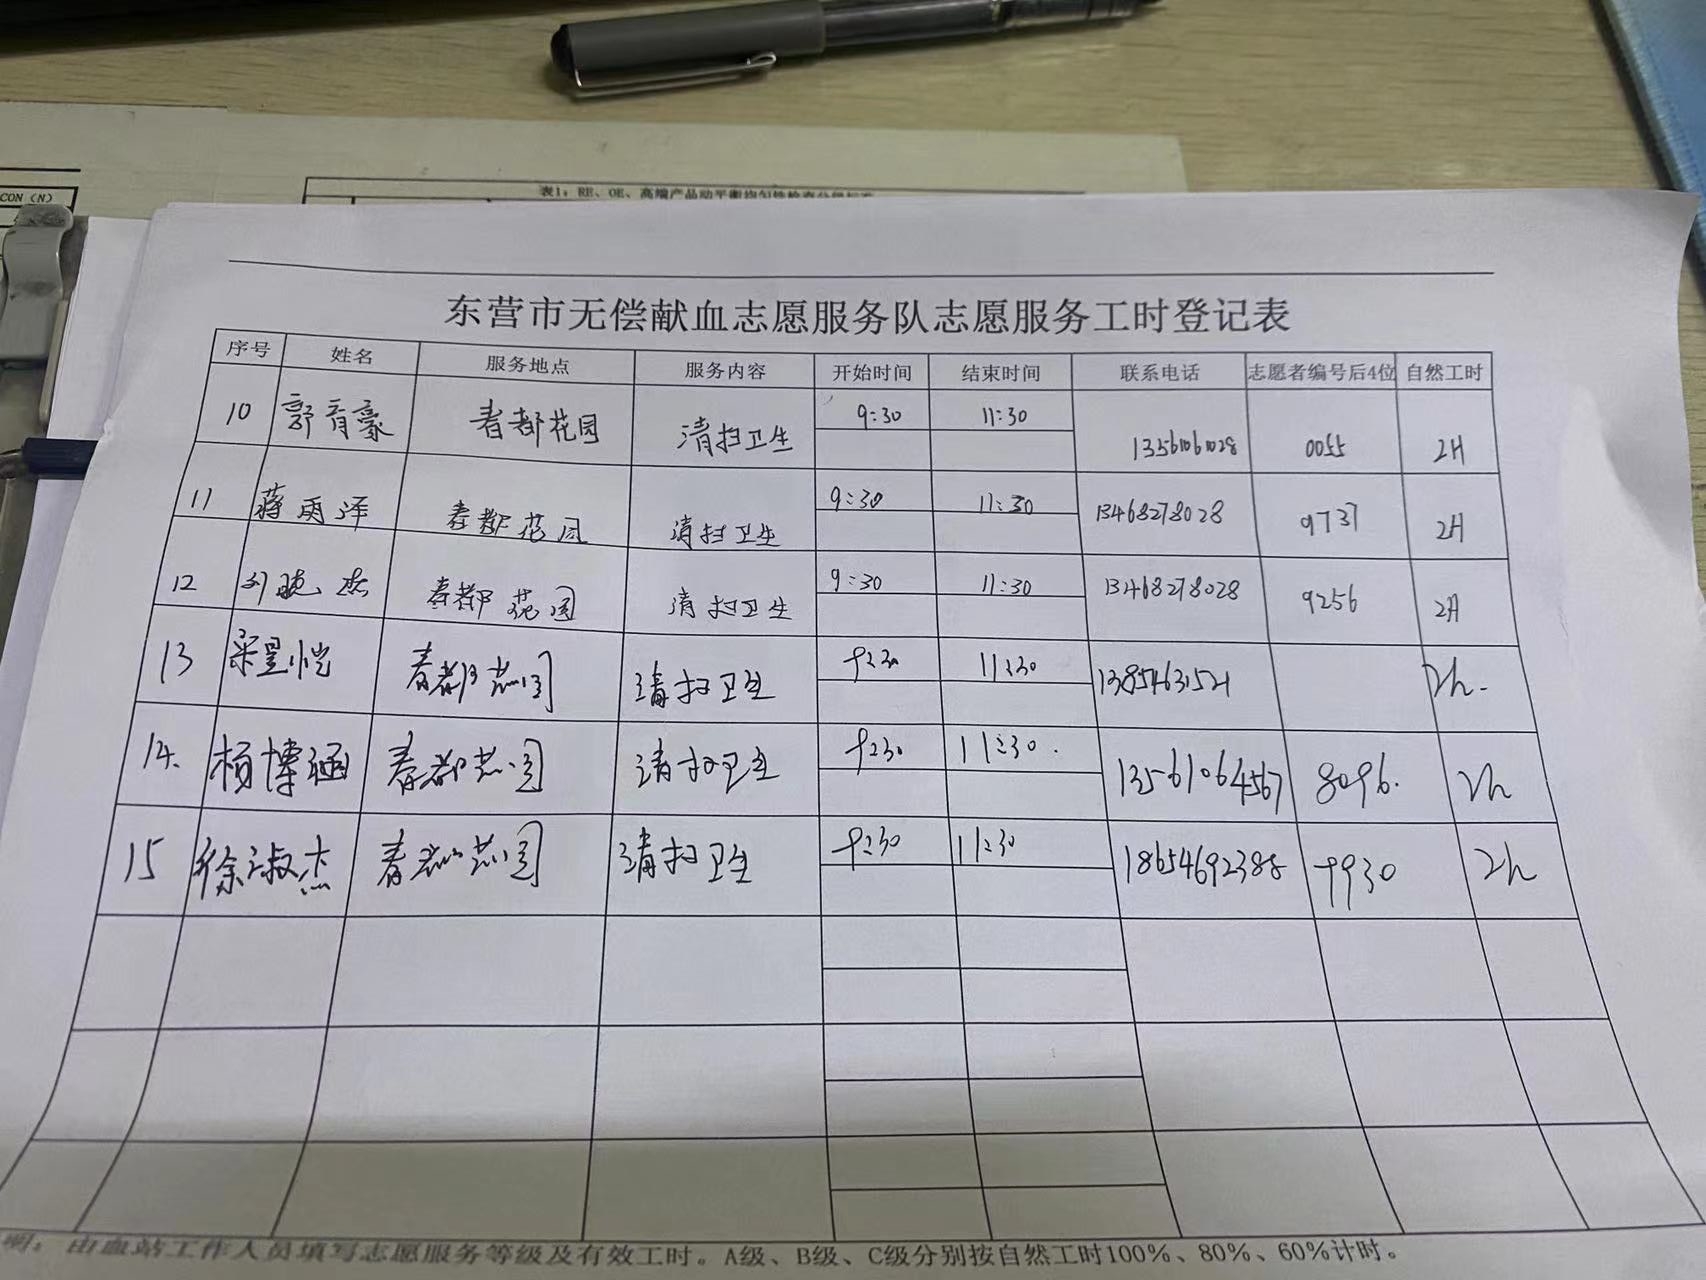 CON (N)
表1: RE、OE、高端产品动平衡均匀性检查分级标准
东营市无偿献血志愿服务队志愿服务工时登记表
序号 姓名 服务地点 服务内容 开始时间 结束时间 联系电话 志愿者编号后4位 自然工时
10 郭育豪 春都花园 清扫卫生 9:30 11:30 13561061028 0055 2H
11 蒋雨泽 春都花园 清扫卫生 9:30 11:30 13468278028 9737 2H
12 刘晓杰 春都花园 清扫卫生 9:30 11:30 13468278028 9256 2H
13 梁昱恺 春都花园 清扫卫生 9:30 11:30 13854631521 2h.
14. 杨博涵 春都花园 清扫卫生 9:30 11:30. 13561064567 8096. 2h
15 徐淑杰 春都花园 清扫卫生 9:30 11:30 18654692388 9930 2h
明：由血站工作人员填写志愿服务等级及有效工时。A级、B级、C级分别按自然工时100%、80%、60%计时。